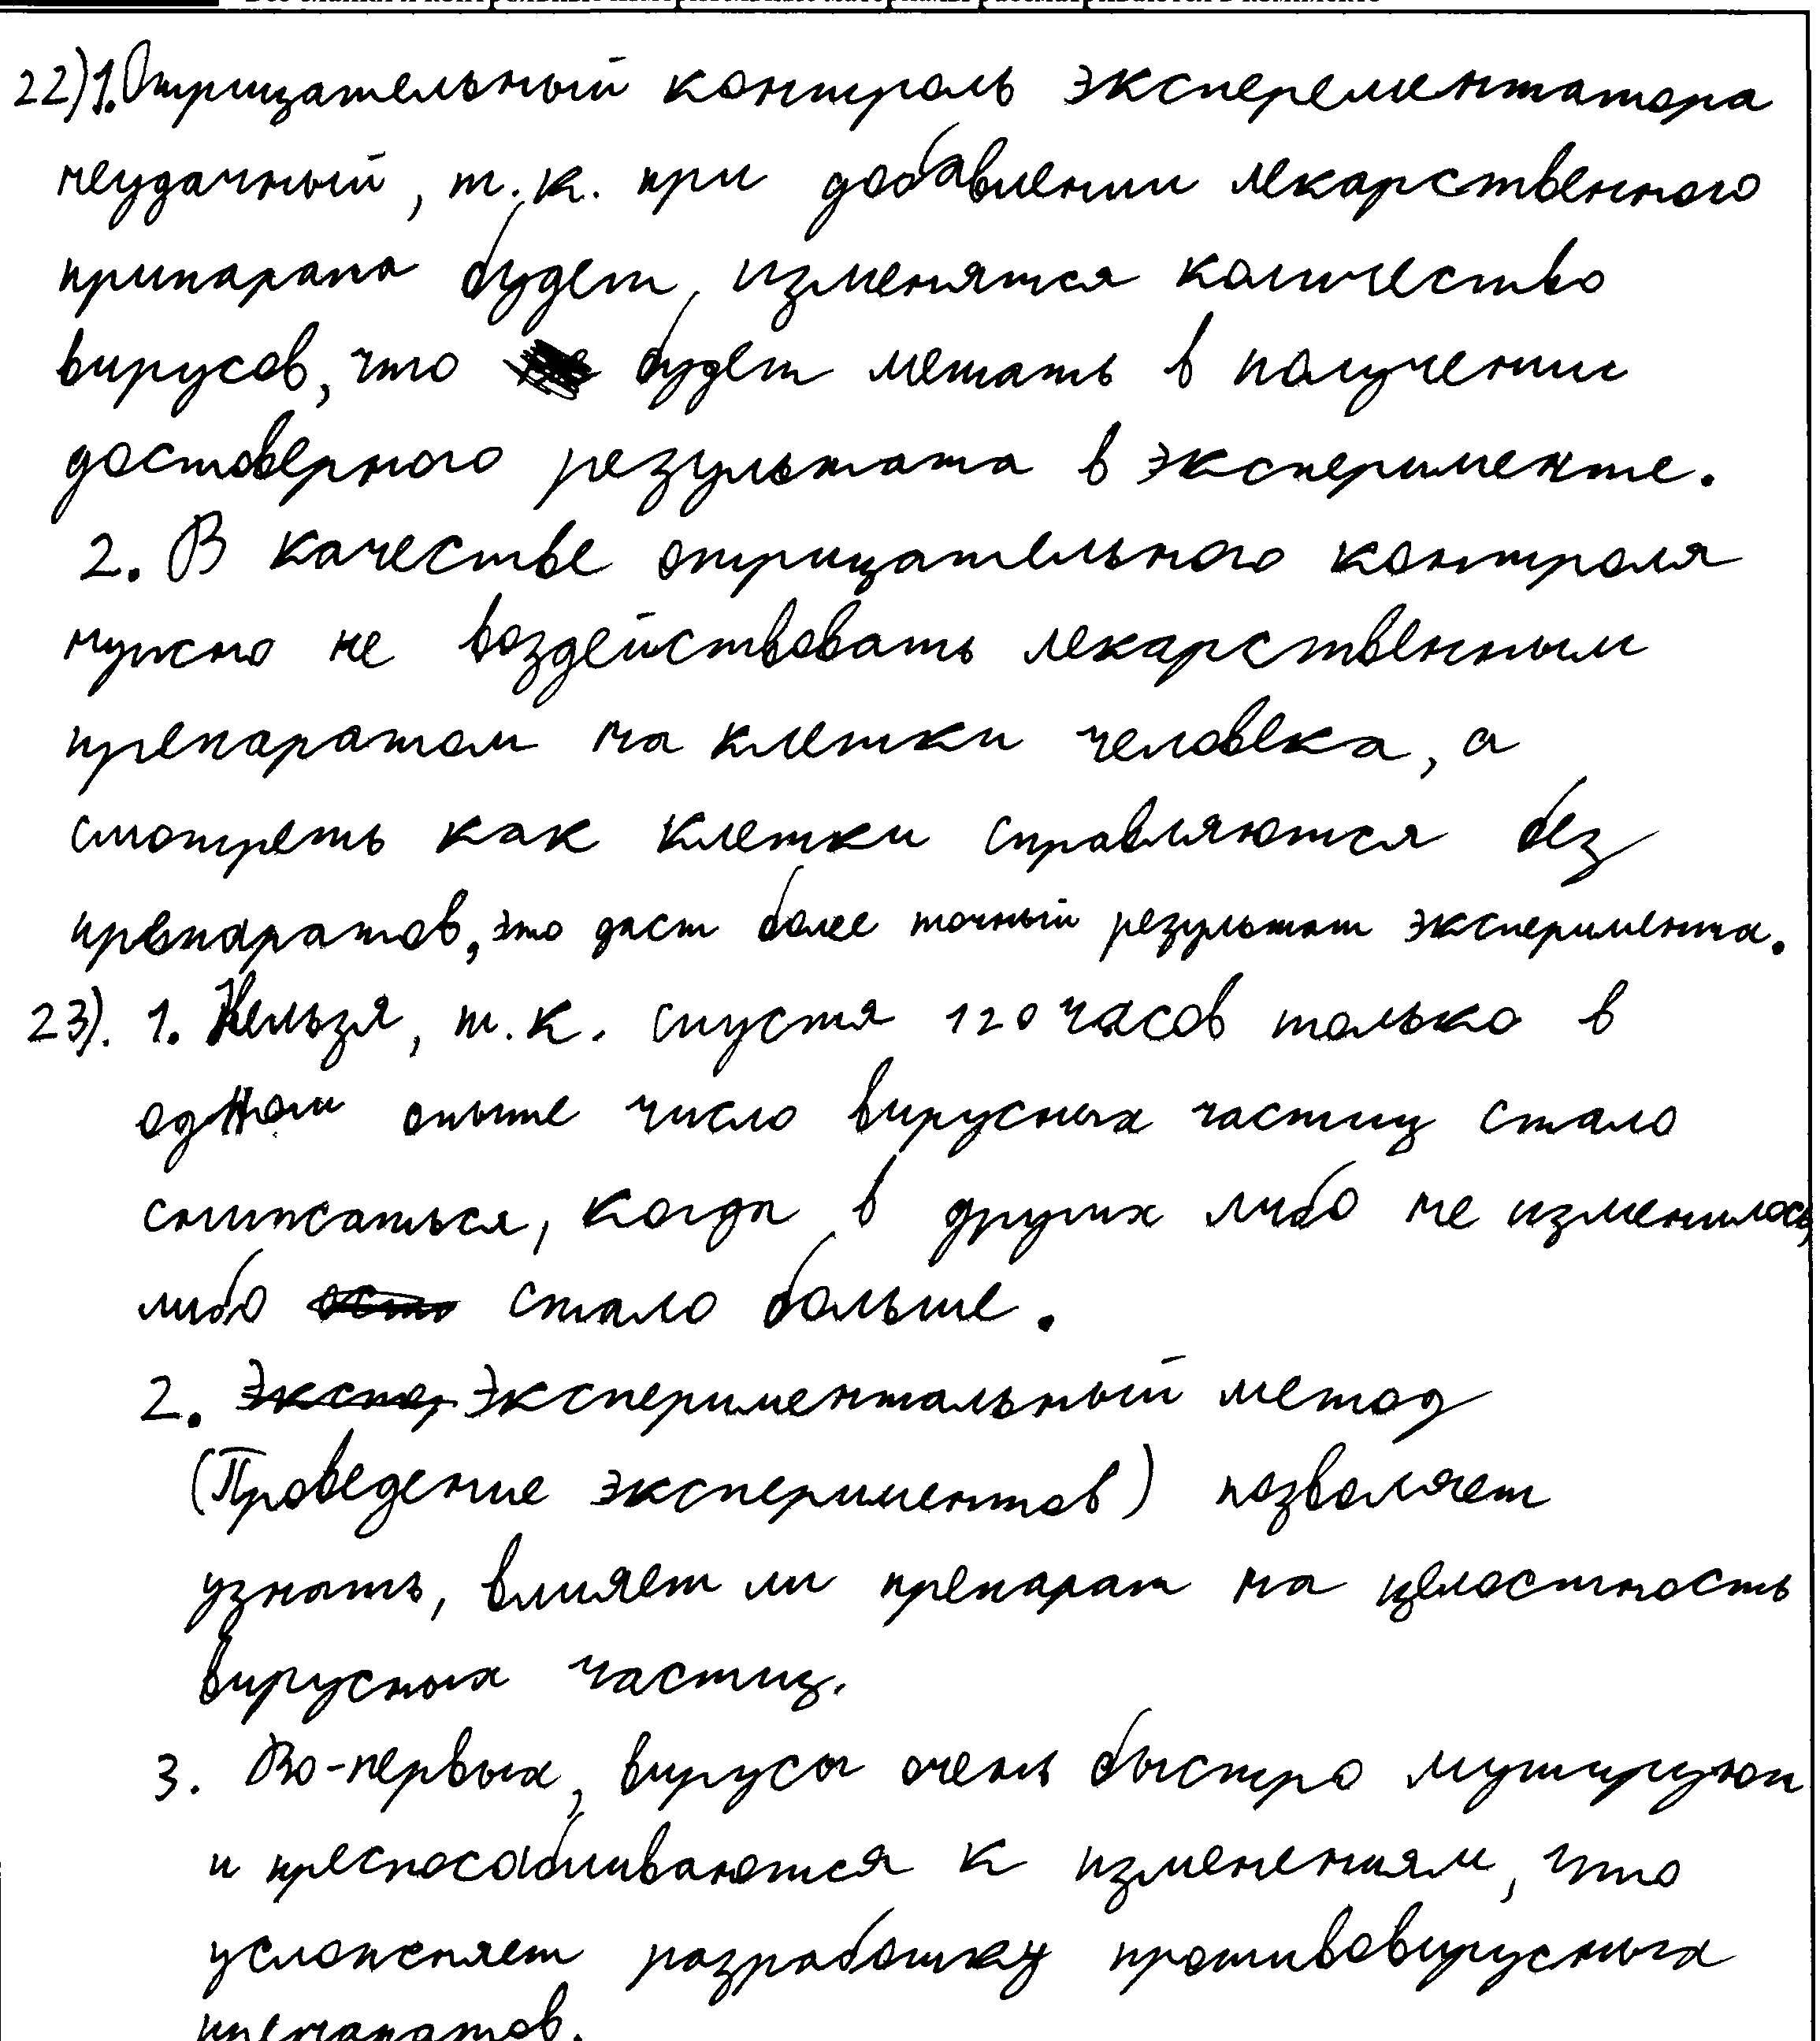 22) 1. Отрицательный контроль эксперементатора
неудачный, т.к. при добавлении лекарственного
припарата будет, изменятся количество
вирусов, что будет мешать в получении
достоверного результата в эксперименте.
2. В качестве отрицательного контроля
нужно не воздействовать лекарственным
препаратом на клетки человека, а
смотреть как клетки справляются без
препаратов, это даст более точный результат эксперимента.
23). 1. Нельзя, т.к. спустя 120 часов только в
одном опыте число вирусных частиц стало
снижаться, когда в других либо не изменилось,
либо стало больше.
2. Экспериментальный метод
(Проведение экспериментов) позволяет
узнать, влияет ли препарат на целостность
вирусных частиц.
3. Во-первых, вирусы очень быстро мутируют
и преспосабливаются к изменениям, что
усложняет разработку противовирусных
препаратов.